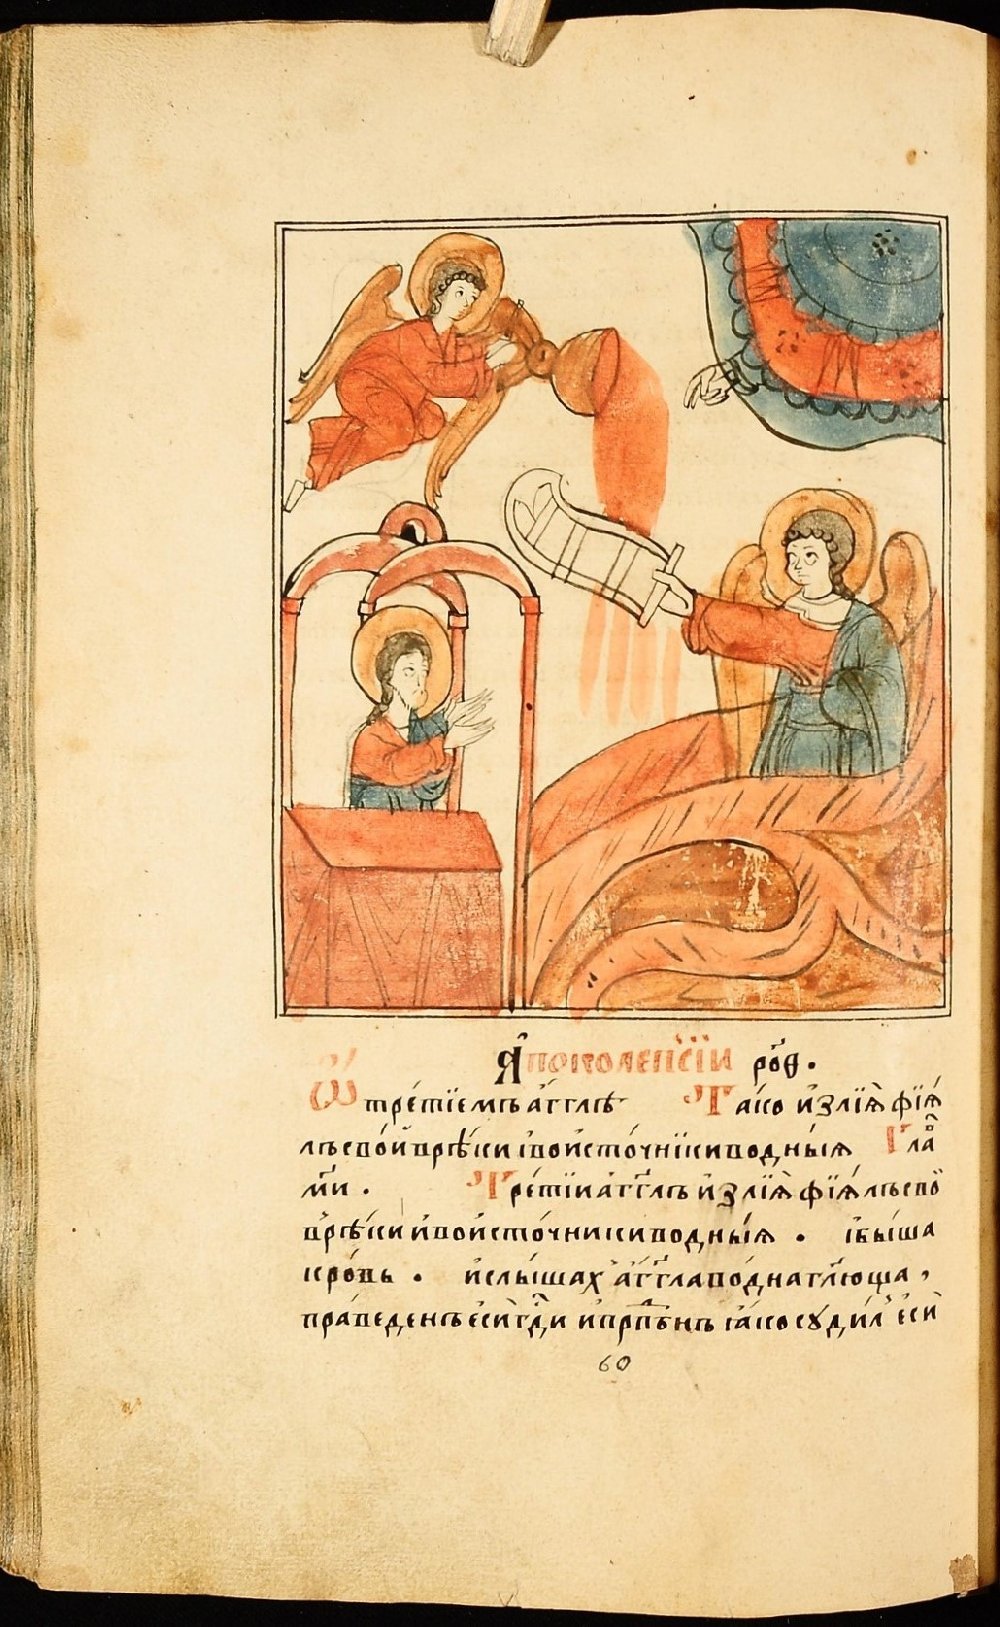 Апокалепсїи роѳ.
Ѡ третїемъ аг҃глѣ Тако излїѧ фїѧ
лъ свой врѣки івоисто́чнїки водныѧ Гла
м҃и. Третїи аг҃глъ излїѧ фїѧлъ сво
врѣки ивоисто́чники водныѧ. ібы́ша
кро́вь. ислы́шах аг҃гла водна гл҃юща,
пра́веденъ еси гд҃и ипрпⷣбнъ іа́ко судил еси
60